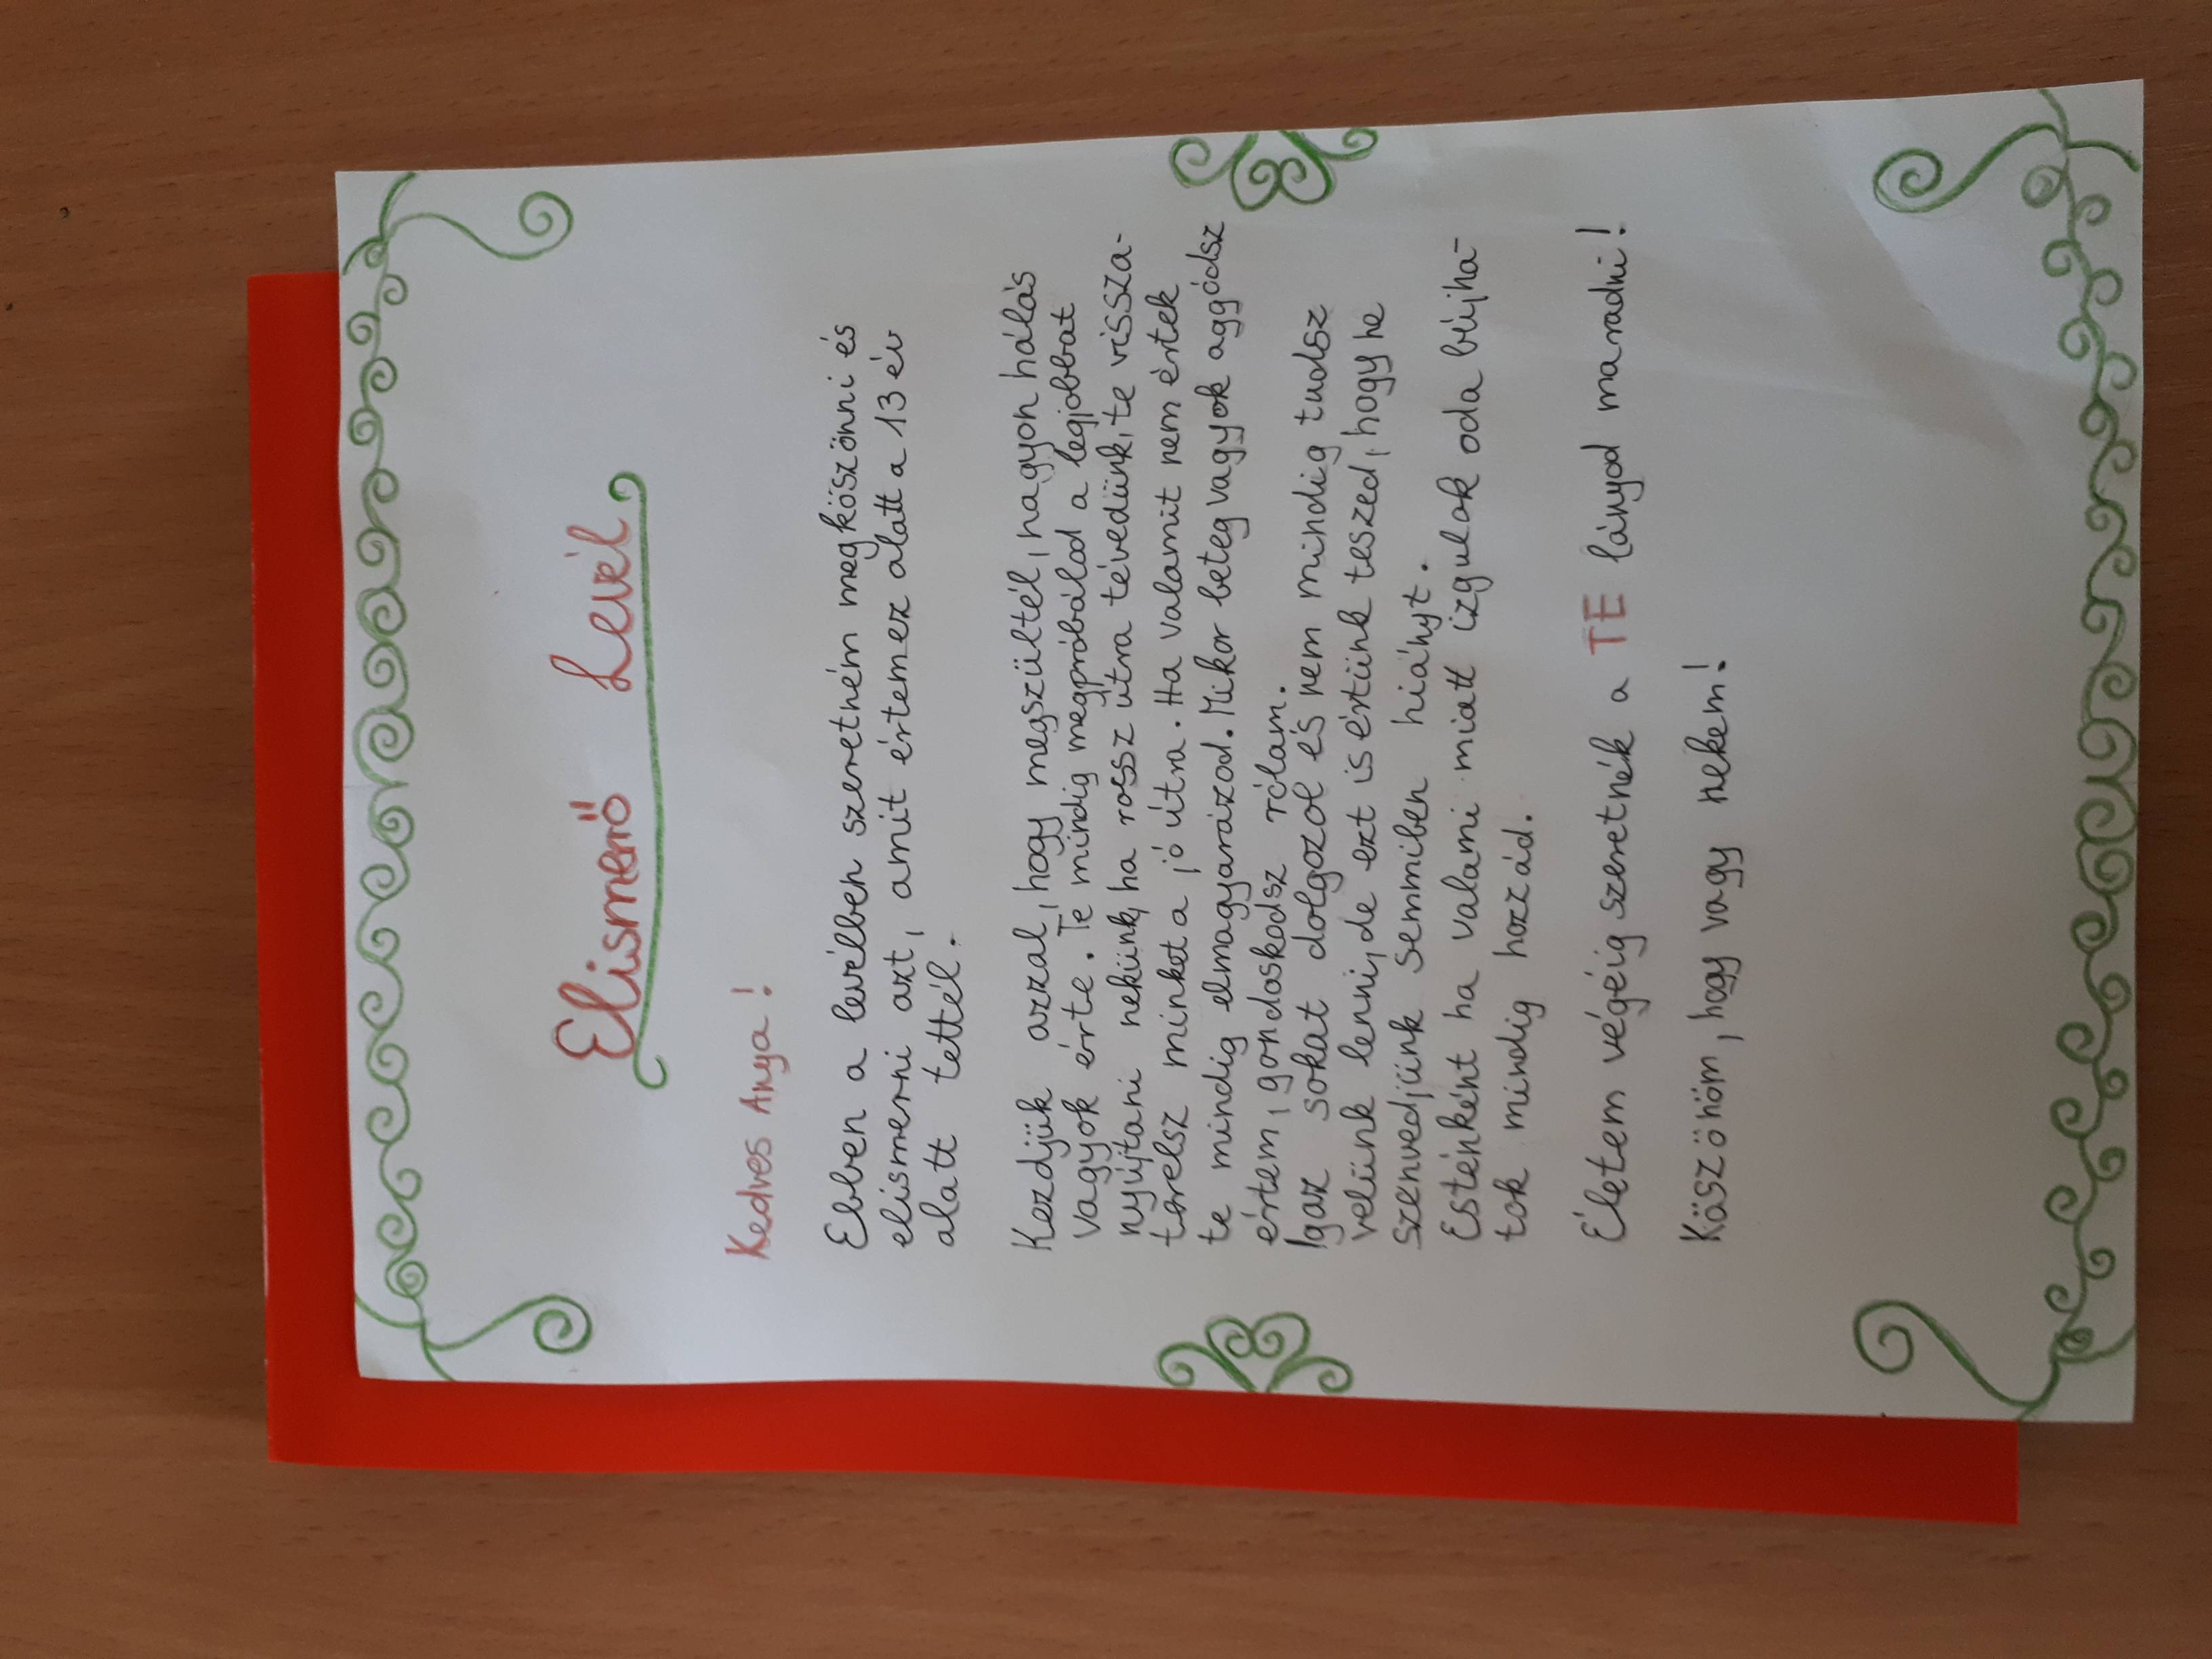 Elismerő Levél
Kedves Anya!
Ebben a levélben szeretném megköszönni és
elismerni azt, amit értem ez alatt a 13 év
alatt tettél.
Kezdjük azzal, hogy megszültél, nagyon hálás
vagyok érte. Te mindig megpróbálod a legjobbat
nyújtani nekünk, ha rossz útra tévedünk, te vissza-
terelsz minket a jó útra. Ha valamit nem értek
te mindig elmagyarázod. Mikor beteg vagyok aggódsz
értem, gondoskodsz rólam.
Igaz sokat dolgozol és nem mindig tudsz
velünk lenni, de ezt is értünk teszed, hogy ne
szenvedjünk semmiben hiányt.
Esténként ha valami miatt izgulok oda bújha-
tok mindig hozzád.
Életem végéig szeretnék a TE lányod maradni!
Köszönöm, hogy vagy nekem!